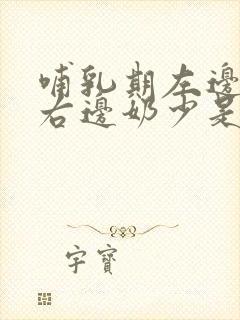 哺乳期左邊
右邊奶少是
宇寶